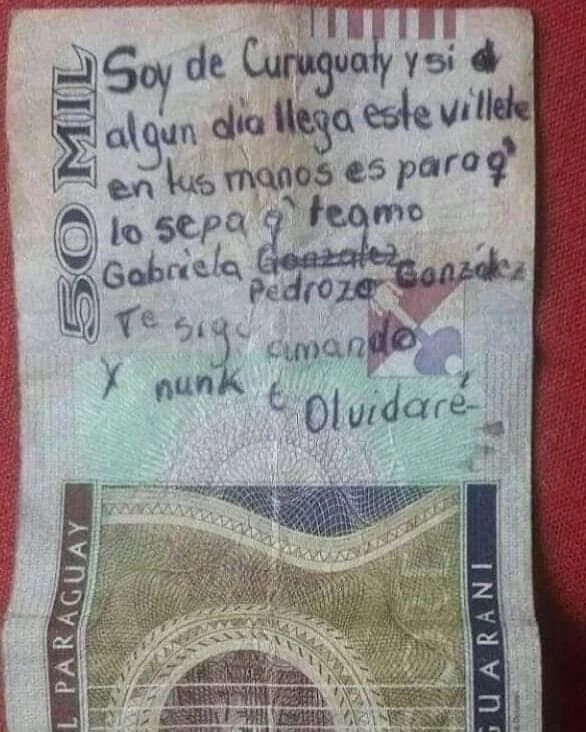 50 MIL
Soy de Curuguaty y si
algun dia llega este villete
en tus manos es para q'
lo sepa q' teamo
Gabriela Gonzalez
Pedrozo González
Te sigo amando
Y nunk t Olvidaré
L PARAGUAY
GUARANI